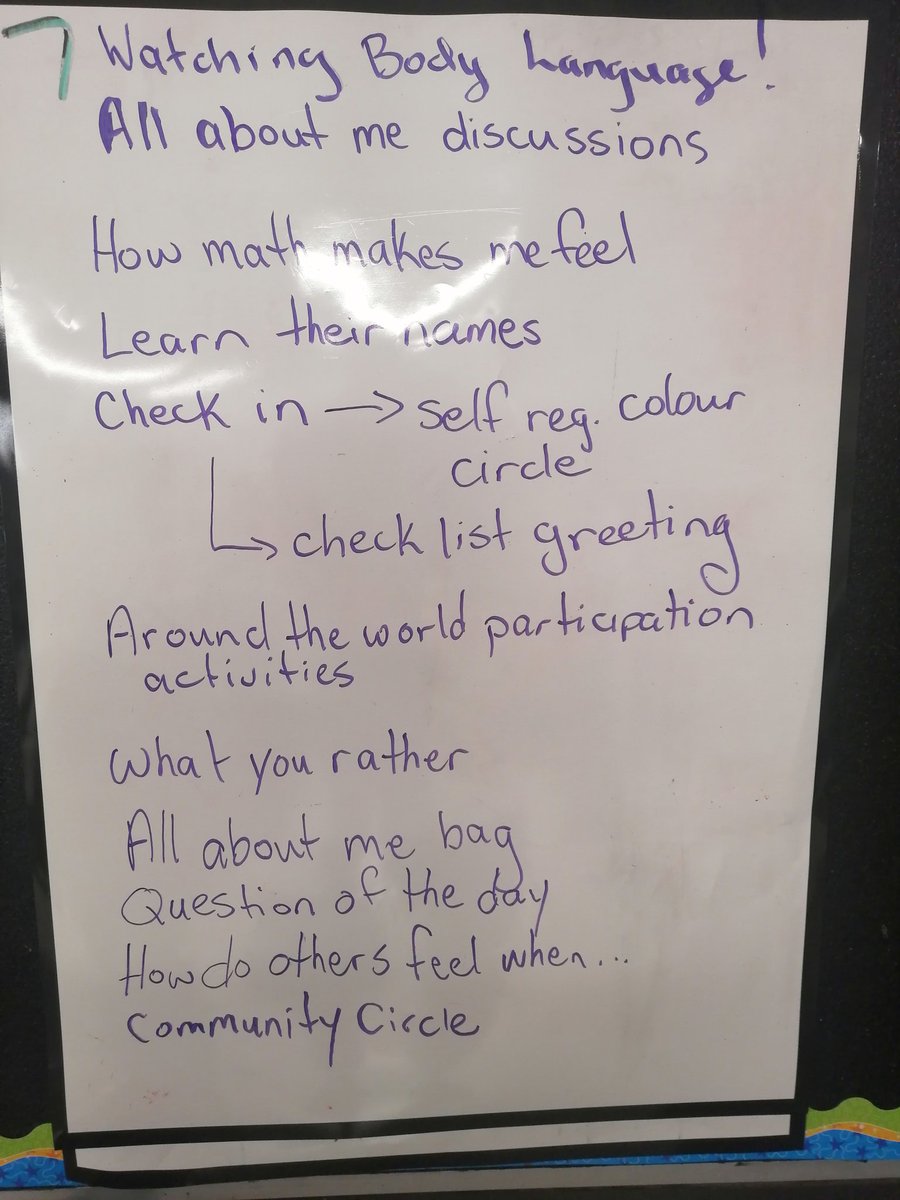 Watching Body Language!
All about me discussions
How math makes me feel
Learn their names
Check in → self reg. colour
circle
↳ check list greeting
Around the world participation
activities
What you rather
All about me bag
Question of the day
How do others feel when...
Community Circle